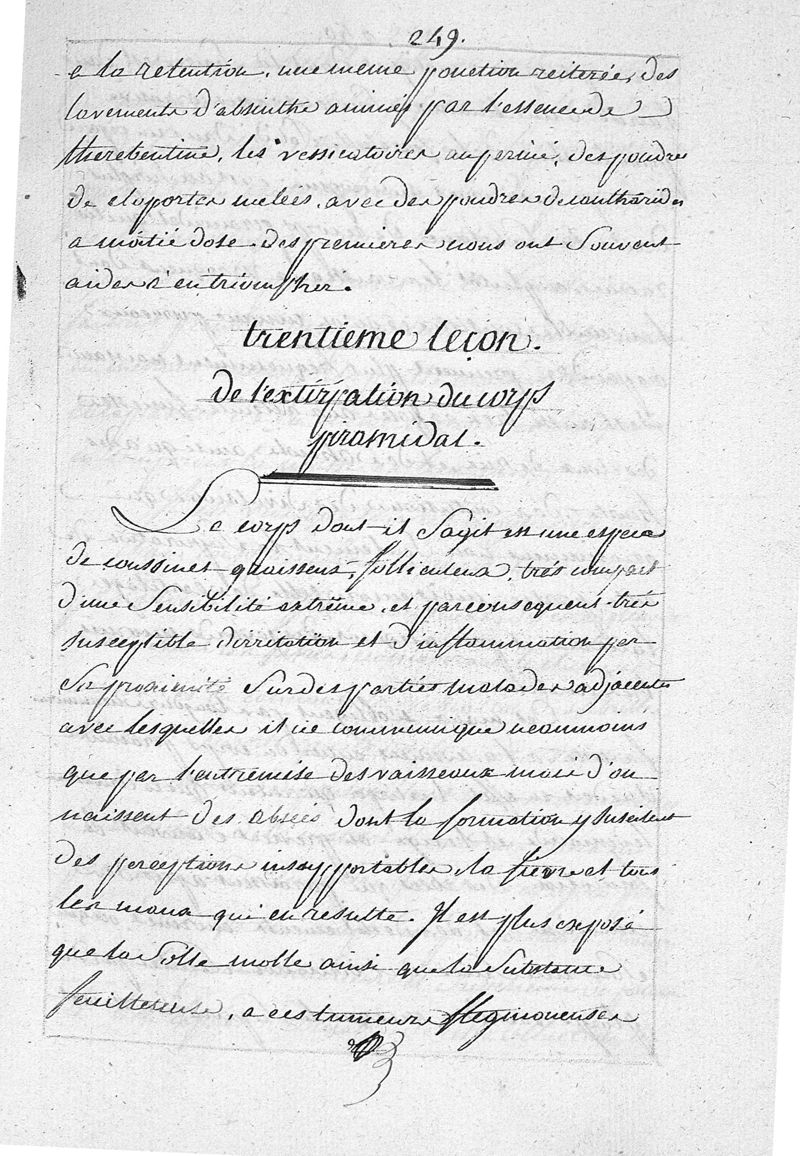 249.
a la retention, une meme ponction reiterée, des
lavements d'absinthe animés par l'essence de
therebentine, les vessicatoires au perine, des poudres
de cloportes melées, avec des poudres de canthárides
a moitié dose des premieres nous ont souvent
aidés a en triompher.
trentieme leçon.
De l'extirpation du corps
piramidal.
Le corps dont il s'agit est une espece
de coussinet graisseux, folliculeux, très compact
d'une sensibilité extrême, et par consequent très
susceptible d'irritation et d'inflammation par
sa proximité sur des parties malades adjacentes
avec lesquelles il ne communique neanmoins
que par l'entremise des vaisseaux mais d'ou
naissent des absées dont la formation y suscitent
des perceptions insupportables, la fievre et tous
les maux qui en resulte. Il est plus exposé
que la solle molle ainsi que la substance
feuilleteuse, a ces tumeurs flegmoneuses